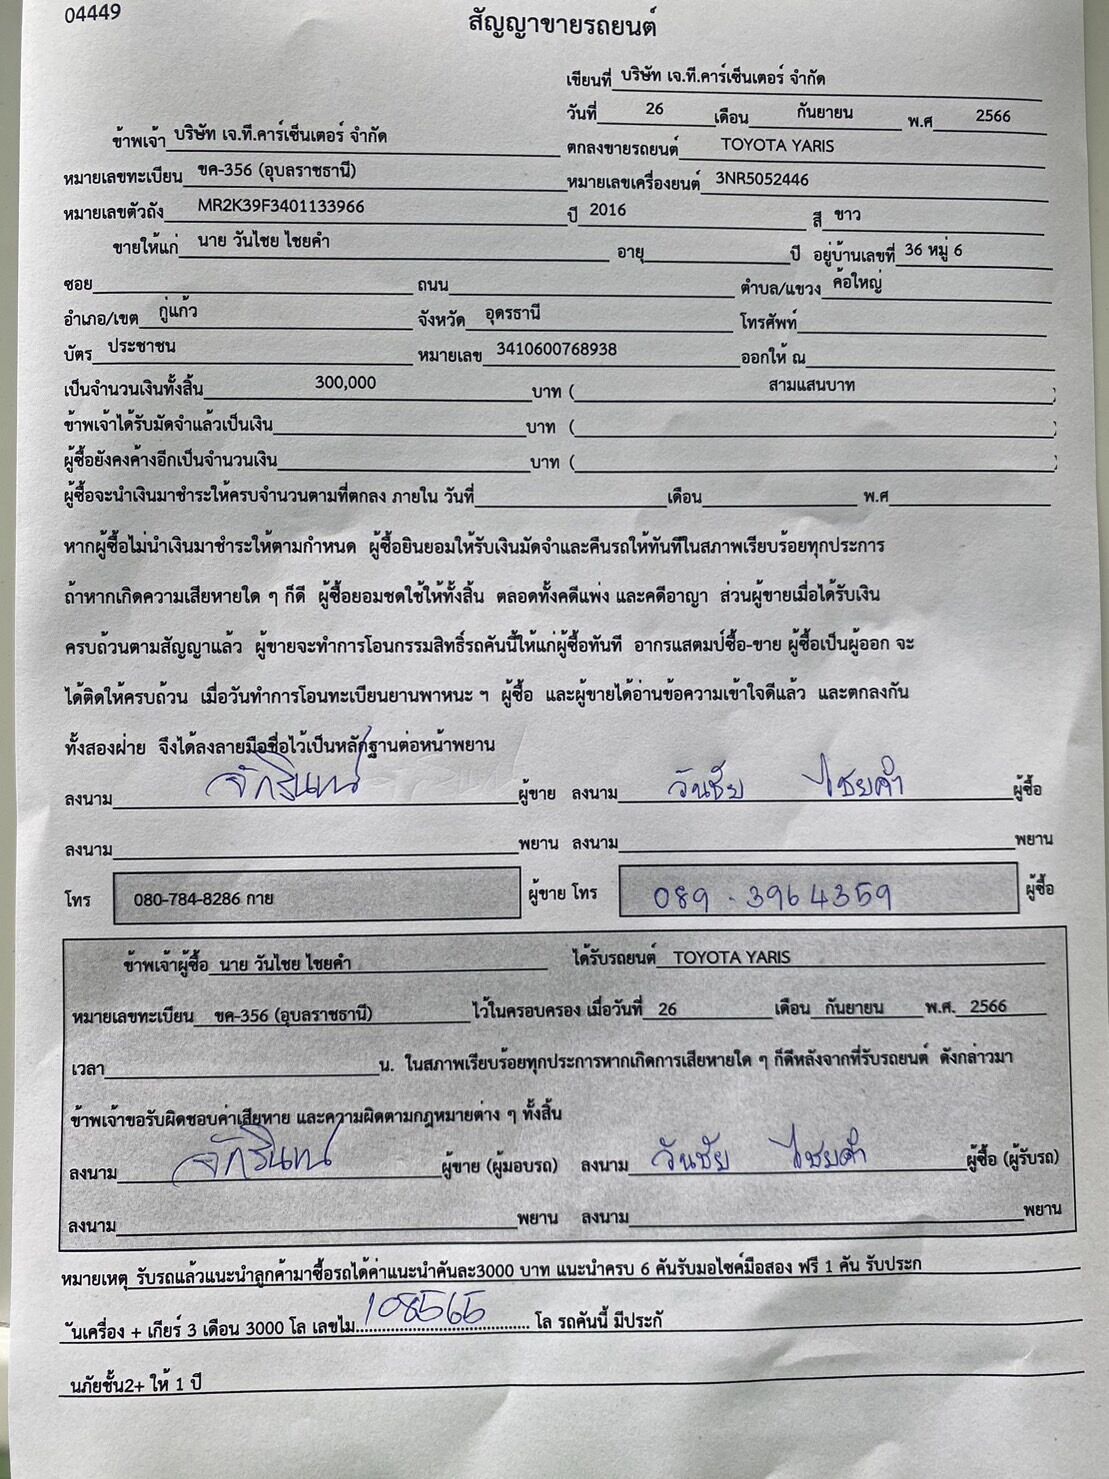 04449
สัญญาขายรถยนต์
เขียนที่ บริษัท เจ.ที.คาร์เซ็นเตอร์ จำกัด
วันที่ 26 เดือน กันยายน พ.ศ 2566
ข้าพเจ้า บริษัท เจ.ที.คาร์เซ็นเตอร์ จำกัด ตกลงขายรถยนต์ TOYOTA YARIS
หมายเลขทะเบียน ขค-356 (อุบลราชธานี) หมายเลขเครื่องยนต์ 3NR5052446
หมายเลขตัวถัง MR2K39F3401133966 ปี 2016 สี ขาว
ขายให้แก่ นาย วันไชย ไชยคำ อายุ ปี อยู่บ้านเลขที่ 36 หมู่ 6
ซอย ถนน ตำบล/แขวง ค้อใหญ่
อำเภอ/เขต กู่แก้ว จังหวัด อุดรธานี โทรศัพท์
บัตร ประชาชน หมายเลข 3410600768938 ออกให้ ณ
เป็นจำนวนเงินทั้งสิ้น 300,000 บาท ( สามแสนบาท )
ข้าพเจ้าได้รับมัดจำแล้วเป็นเงิน บาท ( )
ผู้ซื้อยังคงค้างอีกเป็นจำนวนเงิน บาท ( )
ผู้ซื้อจะนำเงินมาชำระให้ครบจำนวนตามที่ตกลง ภายใน วันที่ เดือน พ.ศ
หากผู้ซื้อไม่นำเงินมาชำระให้ตามกำหนด ผู้ซื้อยินยอมให้รับเงินมัดจำและคืนรถให้ทันทีในสภาพเรียบร้อยทุกประการ
ถ้าหากเกิดความเสียหายใด ๆ ก็ดี ผู้ซื้อยอมชดใช้ให้ทั้งสิ้น ตลอดทั้งคดีแพ่ง และคดีอาญา ส่วนผู้ขายเมื่อได้รับเงิน
ครบถ้วนตามสัญญาแล้ว ผู้ขายจะทำการโอนกรรมสิทธิ์รถคันนี้ให้แก่ผู้ซื้อทันที อากรแสตมป์ซื้อ-ขาย ผู้ซื้อเป็นผู้ออก จะ
ได้ติดให้ครบถ้วน เมื่อวันทำการโอนทะเบียนยานพาหนะ ฯ ผู้ซื้อ และผู้ขายได้อ่านข้อความเข้าใจดีแล้ว และตกลงกัน
ทั้งสองฝ่าย จึงได้ลงลายมือชื่อไว้เป็นหลักฐานต่อหน้าพยาน
ลงนาม จักรินทน์ ผู้ขาย ลงนาม วันชัย ไชยคำ ผู้ซื้อ
ลงนาม พยาน ลงนาม พยาน
โทร 080-784-8286 กาย ผู้ขาย โทร 089-3964359 ผู้ซื้อ
ข้าพเจ้าผู้ซื้อ นาย วันไชย ไชยคำ ได้รับรถยนต์ TOYOTA YARIS
หมายเลขทะเบียน ขค-356 (อุบลราชธานี) ไว้ในครอบครอง เมื่อวันที่ 26 เดือน กันยายน พ.ศ. 2566
เวลา น. ในสภาพเรียบร้อยทุกประการหากเกิดการเสียหายใด ๆ ก็ดีหลังจากที่รับรถยนต์ ดังกล่าวมา
ข้าพเจ้าขอรับผิดชอบค่าเสียหาย และความผิดตามกฎหมายต่าง ๆ ทั้งสิ้น
ลงนาม จักรินทน์ ผู้ขาย (ผู้มอบรถ) ลงนาม วันชัย ไชยคำ ผู้ซื้อ (ผู้รับรถ)
ลงนาม พยาน ลงนาม พยาน
หมายเหตุ รับรถแล้วแนะนำลูกค้ามาซื้อรถได้ค่าแนะนำคันละ3000 บาท แนะนำครบ 6 คันรับมอไซค์มือสอง ฟรี 1 คัน รับประก
ันเครื่อง + เกียร์ 3 เดือน 3000 โล เลขไม 108565 โล รถคันนี้ มีประกั
นภัยชั้น2+ ให้ 1 ปี